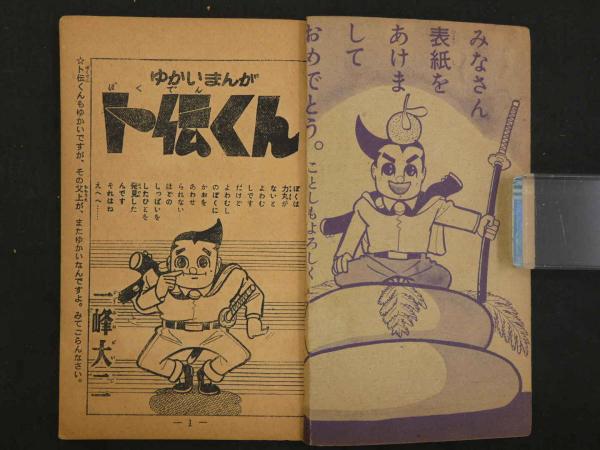 みなさん
表紙を
あけま
して
おめでとう。ことしもよろしく
ゆかいまんが
卜伝くん
ぼくは
力丸が
ないと
よわむ
しです
だけど
よわむし
のぼくに
かおを
あわせ
られない
ほどの
しっぱいを
したひとを
発見した
んです
それはね
えへへ……
一峰大二
☆卜伝くんもゆかいですが、その父上が、またゆかいなんですよ。みてごらんなさい。
— 1 —